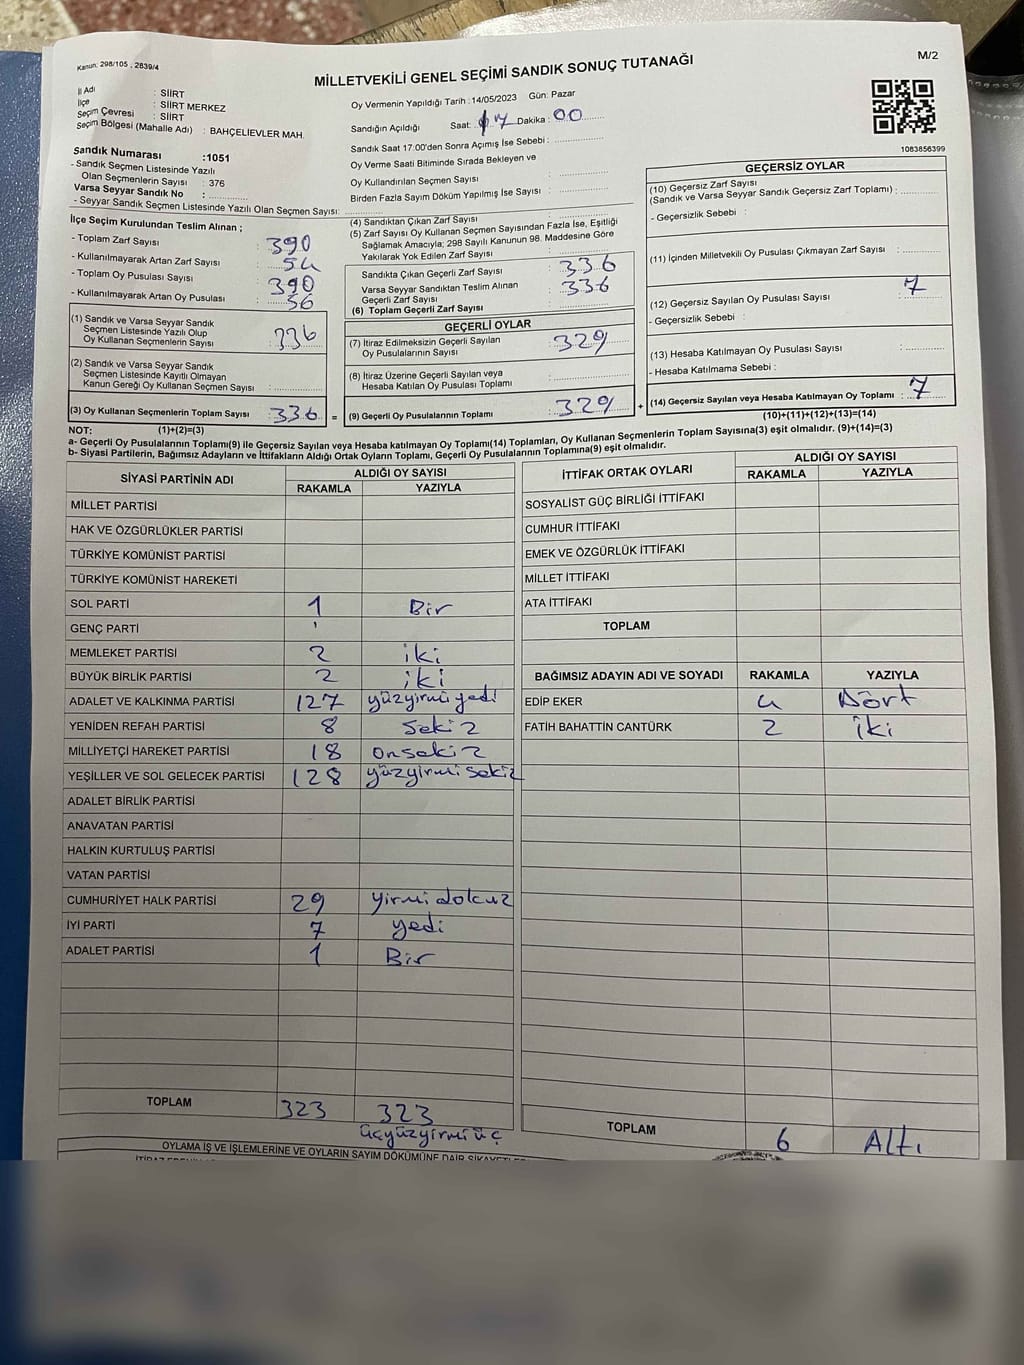 Kanun: 298/105 , 2839/4
M/2
MİLLETVEKİLİ GENEL SEÇİMİ SANDIK SONUÇ TUTANAĞI
İl Adı : SİİRT
İlçe : SİİRT MERKEZ
Seçim Çevresi : SİİRT
Seçim Bölgesi (Mahalle Adı) : BAHÇELİEVLER MAH.
Sandık Numarası :1051
- Sandık Seçmen Listesinde Yazılı
Olan Seçmenlerin Sayısı : 376
Varsa Seyyar Sandık No :
- Seyyar Sandık Seçmen Listesinde Yazılı Olan Seçmen Sayısı:
Oy Vermenin Yapıldığı Tarih :14/05/2023 Gün: Pazar
Sandığın Açıldığı Saat: 17 Dakika : 00
Sandık Saat 17.00'den Sonra Açımış İse Sebebi :
Oy Verme Saati Bitiminde Sırada Bekleyen ve
Oy Kullandırılan Seçmen Sayısı :
Birden Fazla Sayım Döküm Yapılmış İse Sayısı :
1083856399
İlçe Seçim Kurulundan Teslim Alınan ;
- Toplam Zarf Sayısı : 390
- Kullanılmayarak Artan Zarf Sayısı : 54
- Toplam Oy Pusulası Sayısı : 390
- Kullanılmayarak Artan Oy Pusulası : 56
(1) Sandık ve Varsa Seyyar Sandık
Seçmen Listesinde Yazılı Olup
Oy Kullanan Seçmenlerin Sayısı : 336
(2) Sandık ve Varsa Seyyar Sandık
Seçmen Listesinde Kayıtlı Olmayan
Kanun Gereği Oy Kullanan Seçmen Sayısı :
(3) Oy Kullanan Seçmenlerin Toplam Sayısı :336 =
(4) Sandıktan Çıkan Zarf Sayısı :
(5) Zarf Sayısı Oy Kullanan Seçmen Sayısından Fazla İse, Eşitliği
Sağlamak Amacıyla; 298 Sayılı Kanunun 98. Maddesine Göre
Yakılarak Yok Edilen Zarf Sayısı :
Sandıkta Çıkan Geçerli Zarf Sayısı : 336
Varsa Seyyar Sandıktan Teslim Alınan
Geçerli Zarf Sayısı : 336
(6) Toplam Geçerli Zarf Sayısı :
GEÇERLİ OYLAR
(7) İtiraz Edilmeksizin Geçerli Sayılan
Oy Pusulalarının Sayısı : 329
(8) İtiraz Üzerine Geçerli Sayılan veya
Hesaba Katılan Oy Pusulası Toplamı :
(9) Geçerli Oy Pusulalarının Toplamı : 329 +
GEÇERSİZ OYLAR
(10) Geçersiz Zarf Sayısı
(Sandık ve Varsa Seyyar Sandık Geçersiz Zarf Toplamı) :
- Geçersizlik Sebebi :
(11) İçinden Milletvekili Oy Pusulası Çıkmayan Zarf Sayısı :
(12) Geçersiz Sayılan Oy Pusulası Sayısı : 7
- Geçersizlik Sebebi :
(13) Hesaba Katılmayan Oy Pusulası Sayısı :
- Hesaba Katılmama Sebebi :
(14) Geçersiz Sayılan veya Hesaba Katılmayan Oy Toplamı : 7
(10)+(11)+(12)+(13)=(14)
NOT: (1)+(2)=(3)
a- Geçerli Oy Pusulalarının Toplamı(9) ile Geçersiz Sayılan veya Hesaba katılmayan Oy Toplamı(14) Toplamları, Oy Kullanan Seçmenlerin Toplam Sayısına(3) eşit olmalıdır. (9)+(14)=(3)
b- Siyasi Partilerin, Bağımsız Adayların ve İttifakların Aldığı Ortak Oyların Toplamı, Geçerli Oy Pusulalarının Toplamına(9) eşit olmalıdır.
SİYASİ PARTİNİN ADI ALDIĞI OY SAYISI
RAKAMLA YAZIYLA
MİLLET PARTİSİ
HAK VE ÖZGÜRLÜKLER PARTİSİ
TÜRKİYE KOMÜNİST PARTİSİ
TÜRKİYE KOMÜNİST HAREKETİ
SOL PARTİ 1 Bir
GENÇ PARTİ
MEMLEKET PARTİSİ 2 iki
BÜYÜK BİRLİK PARTİSİ 2 iki
ADALET VE KALKINMA PARTİSİ 127 yüzyirmiyedi
YENİDEN REFAH PARTİSİ 8 Sekiz
MİLLİYETÇİ HAREKET PARTİSİ 18 onsekiz
YEŞİLLER VE SOL GELECEK PARTİSİ 128 yüzyirmi sekiz
ADALET BİRLİK PARTİSİ
ANAVATAN PARTİSİ
HALKIN KURTULUŞ PARTİSİ
VATAN PARTİSİ
CUMHURİYET HALK PARTİSİ 29 yirmi dokuz
İYİ PARTİ 7 yedi
ADALET PARTİSİ 1 Bir
TOPLAM 323 323
üçyüzyirmi üç
İTTİFAK ORTAK OYLARI ALDIĞI OY SAYISI
RAKAMLA YAZIYLA
SOSYALİST GÜÇ BİRLİĞİ İTTİFAKI
CUMHUR İTTİFAKI
EMEK VE ÖZGÜRLÜK İTTİFAKI
MİLLET İTTİFAKI
ATA İTTİFAKI
TOPLAM
BAĞIMSIZ ADAYIN ADI VE SOYADI RAKAMLA YAZIYLA
EDİP EKER 4 Dört
FATİH BAHATTİN CANTÜRK 2 İki
TOPLAM 6 Altı
OYLAMA İŞ VE İŞLEMLERİNE VE OYLARIN SAYIM DÖKÜMÜNE DAİR ŞİKAYETLER